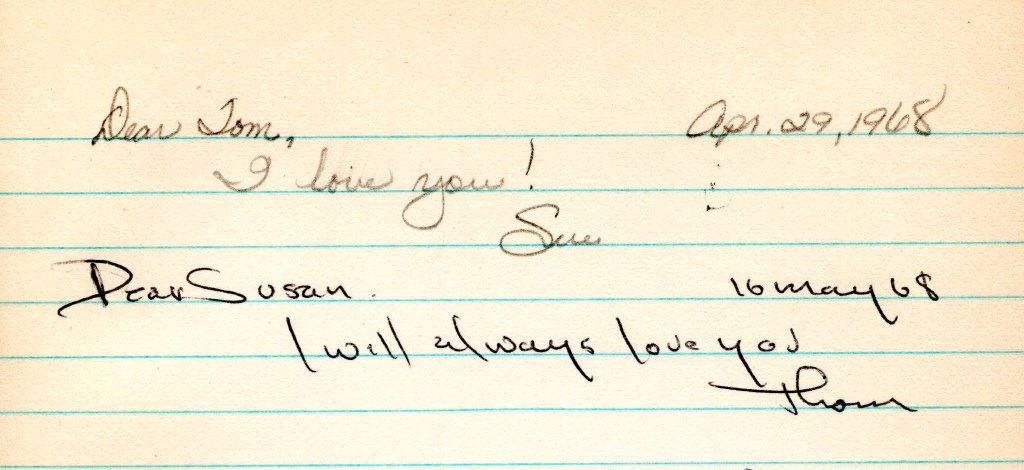 Dear Tom, Apr. 29, 1968
I love you!
Sue
Dear Susan. 16 May 68
I will always love you
Thom